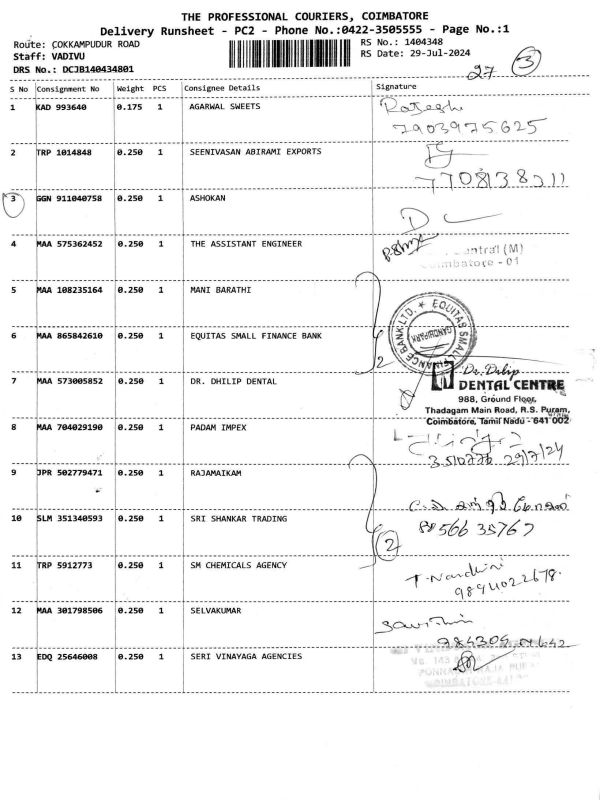 THE PROFESSIONAL COURIERS, COIMBATORE
Delivery Runsheet - PC2 - Phone No.:0422-3505555 - Page No.:1
Route: COKKAMPUDUR ROAD
Staff: VADIVU
DRS No.: DCJB140434801
RS No.: 1404348
RS Date: 29-Jul-2024
27 3
S No Consignment No Weight PCS Consignee Details Signature
1 KAD 993640 0.175 1 AGARWAL SWEETS Rajesh
7903975625
2 TRP 1014848 0.250 1 SEENIVASAN ABIRAMI EXPORTS
7708138211
3 GGN 911040758 0.250 1 ASHOKAN
4 MAA 575362452 0.250 1 THE ASSISTANT ENGINEER
Central (M)
Coimbatore - 01
5 MAA 108235164 0.250 1 MANI BARATHI
6 MAA 865842610 0.250 1 EQUITAS SMALL FINANCE BANK
EQUITAS SMALL FINANCE BANK LTD. *
GANDHIPARK
2
7 MAA 573005852 0.250 1 DR. DHILIP DENTAL
Dr. Dilip
DENTAL CENTRE
988, Ground Floor,
Thadagam Main Road, R.S. Puram,
Coimbatore, Tamil Nadu - 641 002
8 MAA 704029190 0.250 1 PADAM IMPEX
29/7/24
9 JPR 502779471 0.250 1 RAJAMAIKAM
10 SLM 351340593 0.250 1 SRI SHANKAR TRADING
2
11 TRP 5912773 0.250 1 SM CHEMICALS AGENCY
T. Nandhini
9894022678.
12 MAA 301798506 0.250 1 SELVAKUMAR
13 EDQ 25646008 0.250 1 SERI VINAYAGA AGENCIES